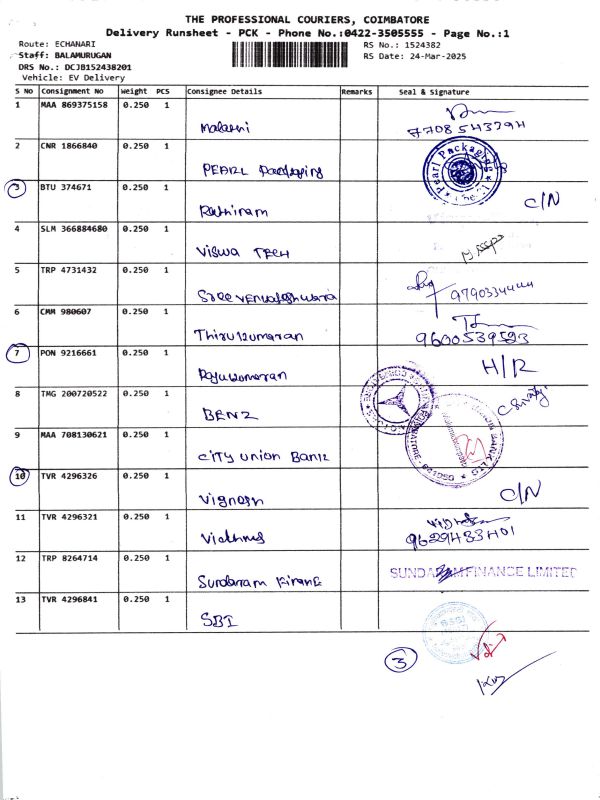 THE PROFESSIONAL COURIERS, COIMBATORE
Delivery Runsheet - PCK - Phone No.:0422-3505555 - Page No.:1
Route: ECHANARI
RS No.: 1524382
Staff: BALAMURUGAN
RS Date: 24-Mar-2025
DRS No.: DCJB152438201
Vehicle: EV Delivery
S NO Consignment No Weight PCS Consignee Details Remarks Seal & Signature
1 MAA 869375158 0.250 1
Malarni 7708543294
2 CNR 1866840 0.250 1
PEARL Packaging Pearl Packaging
3 BTU 374671 0.250 1
Rathinam C/N
4 SLM 366884680 0.250 1
Viswa TECH
5 TRP 4731432 0.250 1
Sree venkateshwara 9790334444
6 CMM 980607 0.250 1
Thirukumaran 9600539523
7 PON 9216661 0.250 1
Rajukumaran H/R
8 TMG 200720522 0.250 1
BENZ
9 MAA 708130621 0.250 1
CITY union Bank
10 TVR 4296326 0.250 1
Vignesh C/N
11 TVR 4296321 0.250 1
9629433401
12 TRP 8264714 0.250 1
Sundaram Finance SUNDARAM FINANCE LIMITED
13 TVR 4296841 0.250 1
SBI
3